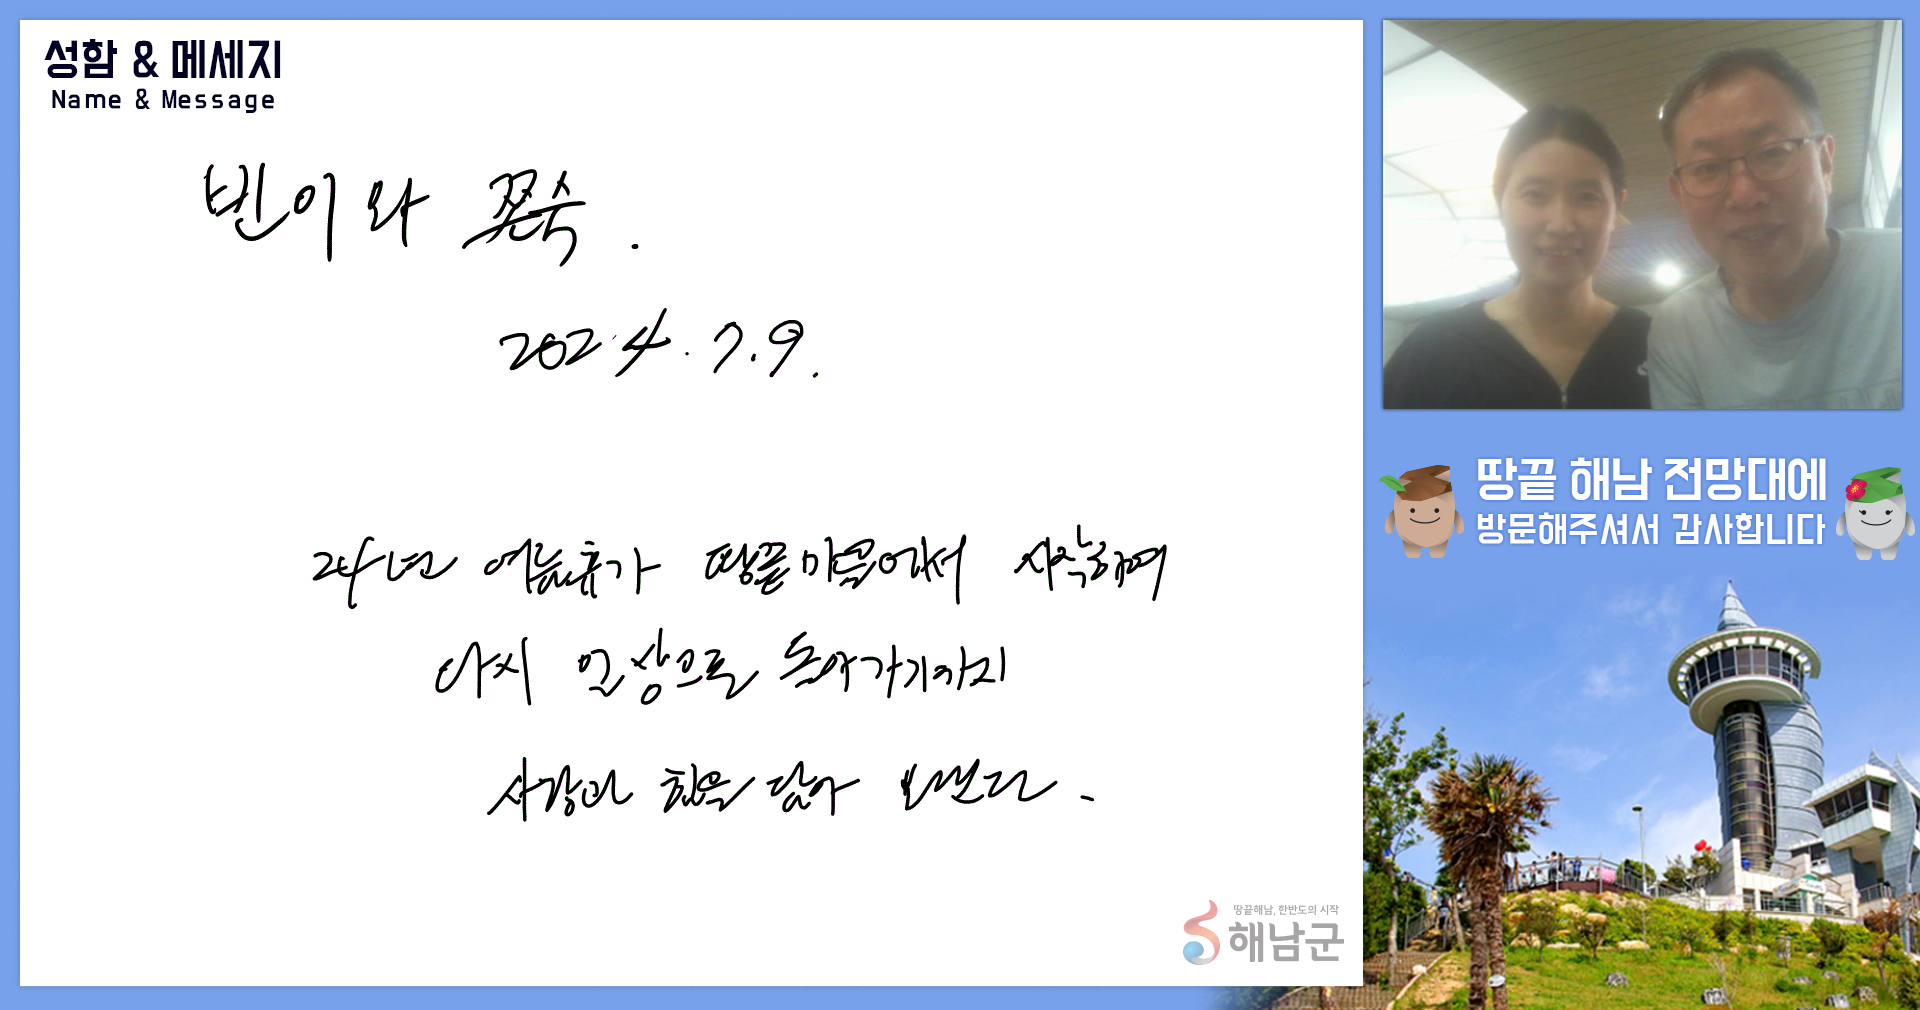 성함 & 메세지
Name & Message
빈이와 쫀숙.
2024.7.9.
24년 여름휴가 땅끝마을에서 시작하여
다시 일상으로 돌아가기까지
사랑과 힘을 담아 보낸다.
땅끝해남, 한반도의 시작
해남군
땅끝 해남 전망대에
방문해주셔서 감사합니다